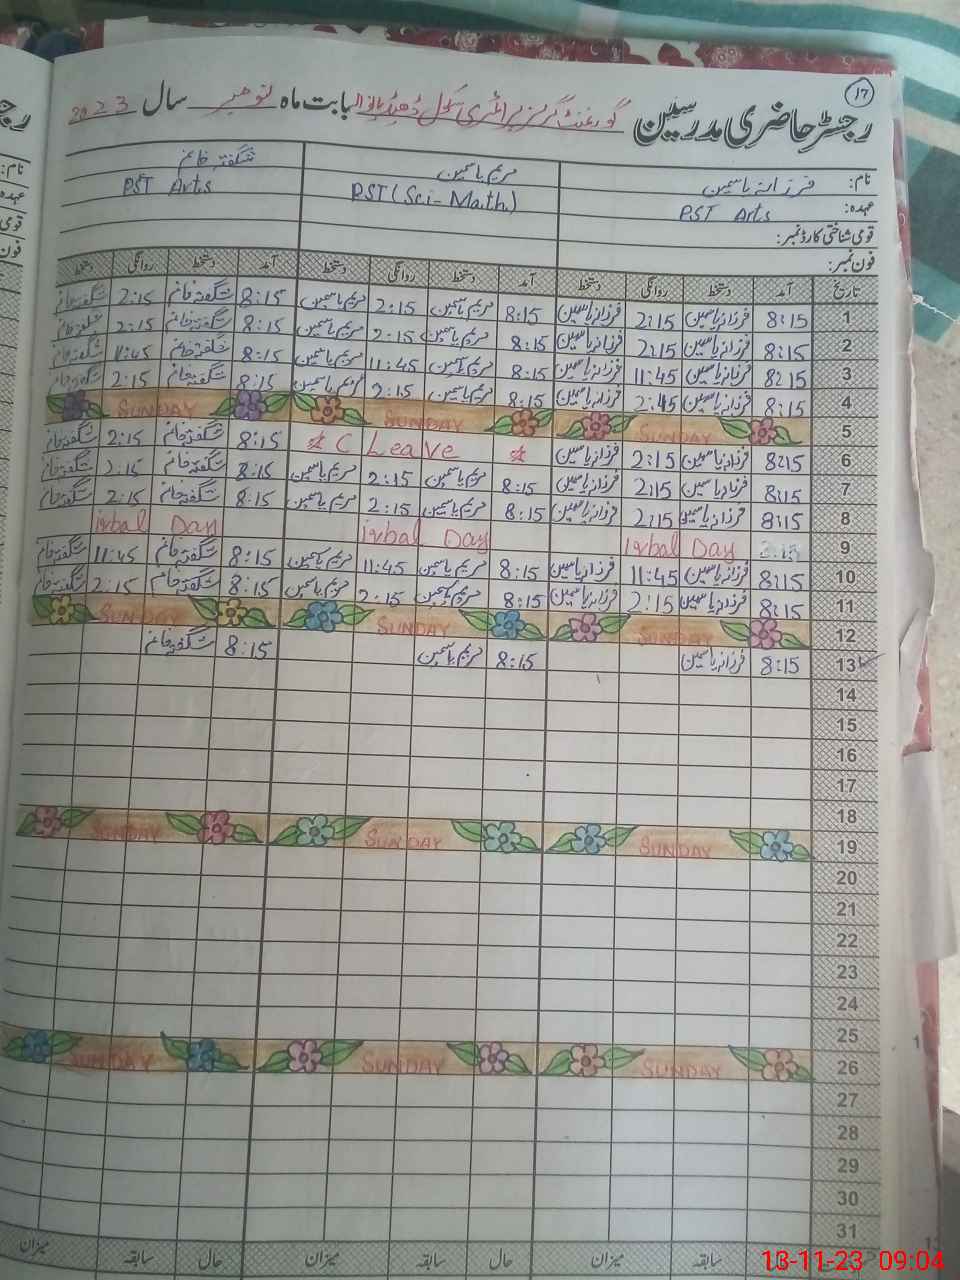 17
رجسٹر حاضری مدرسین گورنمنٹ گرلز پرائمری سکول بابت ماہ نومبر سال 2023
نام: فرزانہ یاسمین مریم یاسمین شگفتہ خانم
عہدہ: PST Arts PST (Sci-Math) PST Arts
قومی شناختی کارڈ نمبر:
فون نمبر:
تاریخ آمد دستخط روانگی دستخط آمد دستخط روانگی دستخط آمد دستخط روانگی دستخط
1 8:15 فرزانہ یاسمین 2:15 فرزانہ یاسمین 8:15 مریم یاسمین 2:15 مریم یاسمین 8:15 شگفتہ خانم 2:15 شگفتہ خانم
2 8:15 فرزانہ یاسمین 2:15 فرزانہ یاسمین 8:15 مریم یاسمین 2:15 مریم یاسمین 8:15 شگفتہ خانم 2:15 شگفتہ خانم
3 8:15 فرزانہ یاسمین 11:45 فرزانہ یاسمین 8:15 مریم یاسمین 11:45 مریم یاسمین 8:15 شگفتہ خانم 11:45 شگفتہ خانم
4 8:15 فرزانہ یاسمین 2:45 فرزانہ یاسمین 8:15 مریم یاسمین 2:15 مریم یاسمین 8:15 شگفتہ خانم 2:15 شگفتہ خانم
5 SUNDAY SUNDAY SUNDAY
6 8:15 فرزانہ یاسمین 2:15 فرزانہ یاسمین C Leave 8:15 شگفتہ خانم 2:15 شگفتہ خانم
7 8:15 فرزانہ یاسمین 2:15 فرزانہ یاسمین 8:15 مریم یاسمین 2:15 مریم یاسمین 8:15 شگفتہ خانم 2:15 شگفتہ خانم
8 8:15 فرزانہ یاسمین 2:15 فرزانہ یاسمین 8:15 مریم یاسمین 2:15 مریم یاسمین 8:15 شگفتہ خانم 2:15 شگفتہ خانم
9 Iqbal Day Iqbal Day Iqbal Day
10 8:15 فرزانہ یاسمین 11:45 فرزانہ یاسمین 8:15 مریم یاسمین 11:45 مریم یاسمین 8:15 شگفتہ خانم 11:45 شگفتہ خانم
11 8:15 فرزانہ یاسمین 2:15 فرزانہ یاسمین 8:15 مریم یاسمین 2:15 مریم یاسمین 8:15 شگفتہ خانم 2:15 شگفتہ خانم
12 SUNDAY SUNDAY SUNDAY
13 8:15 فرزانہ یاسمین 8:15 مریم یاسمین 8:15 شگفتہ خانم
14
15
16
17
18
19 SUNDAY SUNDAY SUNDAY
20
21
22
23
24
25
26 SUNDAY SUNDAY SUNDAY
27
28
29
30
31
سابقہ میزان حال سابقہ میزان حال سابقہ میزان
13-11-23 09:04